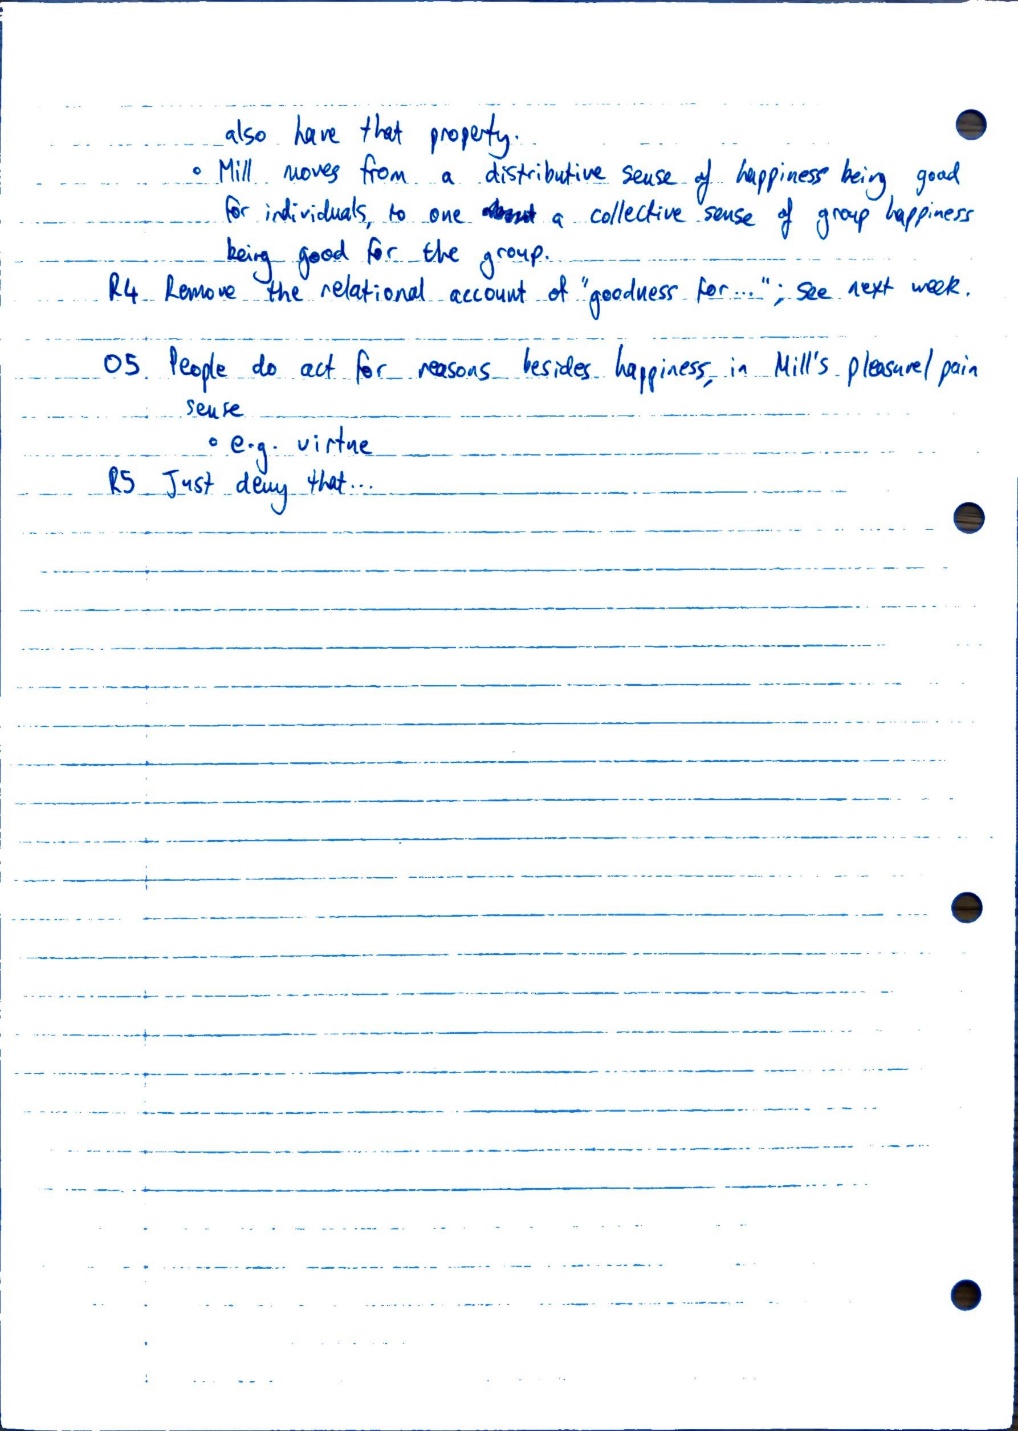 also have that property.
◦ Mill moves from a distributive sense of happiness being good
for individuals, to one a collective sense of group happiness
being good for the group.
R4 Remove the relational account of "goodness for..."; see next week.
O5 People do act for reasons besides happiness, in Mill's pleasure/pain
sense
◦ e.g. virtue
R5 Just deny that...